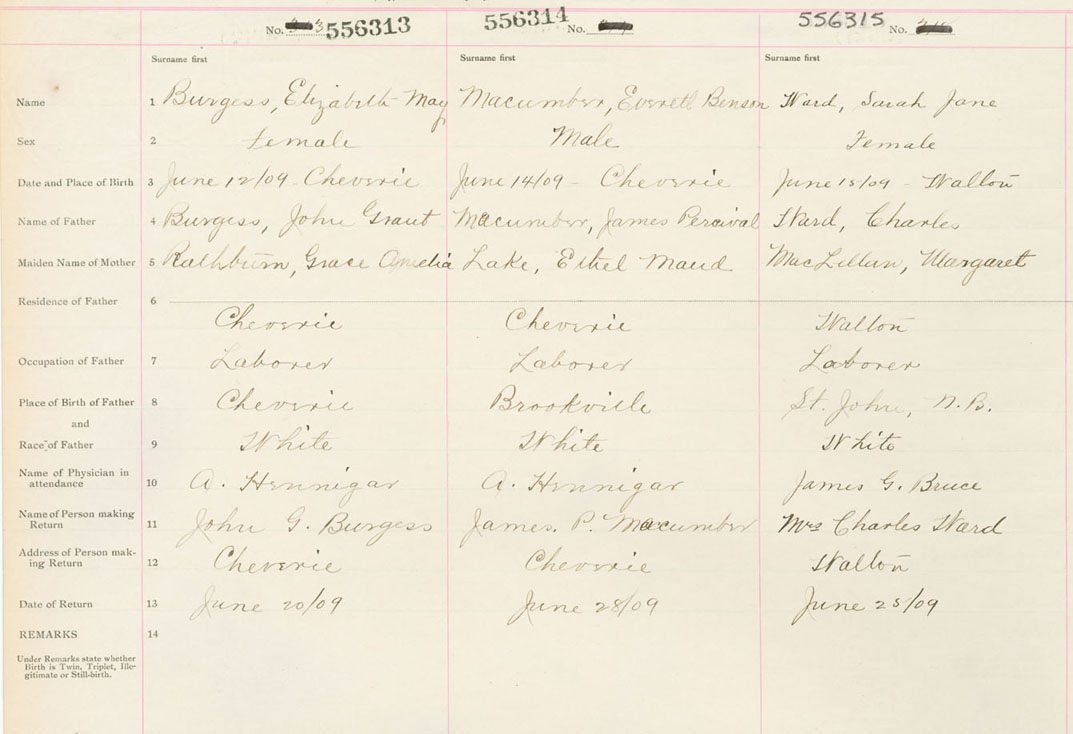 No. 556313 556314 No. 556315 No.
Surname first Surname first Surname first
Name 1 Burgess, Elizabeth May Macumber, Everett Benson Ward, Sarah Jane
Sex 2 Female Male Female
Date and Place of Birth 3 June 12/09 - Cheverie June 14/09 - Cheverie June 15/09 - Walton
Name of Father 4 Burgess, John Grant Macumber, James Percival Ward, Charles
Maiden Name of Mother 5 Rathburn, Grace Amelia Lake, Ethel Maud MacLellan, Margaret
Residence of Father 6
Cheverie Cheverie Walton
Occupation of Father 7 Laborer Laborer Laborer
Place of Birth of Father 8 Cheverie Brookville St. John, N.B.
and
Race of Father 9 White White White
Name of Physician in
attendance 10 A. Hennigar A. Hennigar James G. Bruce
Name of Person making
Return 11 John G. Burgess James. P. Macumber Mrs Charles Ward
Address of Person mak-
ing Return 12 Cheverie Cheverie Walton
Date of Return 13 June 20/09 June 28/09 June 25/09
REMARKS 14
Under Remarks state whether
Birth is Twin, Triplet, Ille-
gitimate or Still-birth.